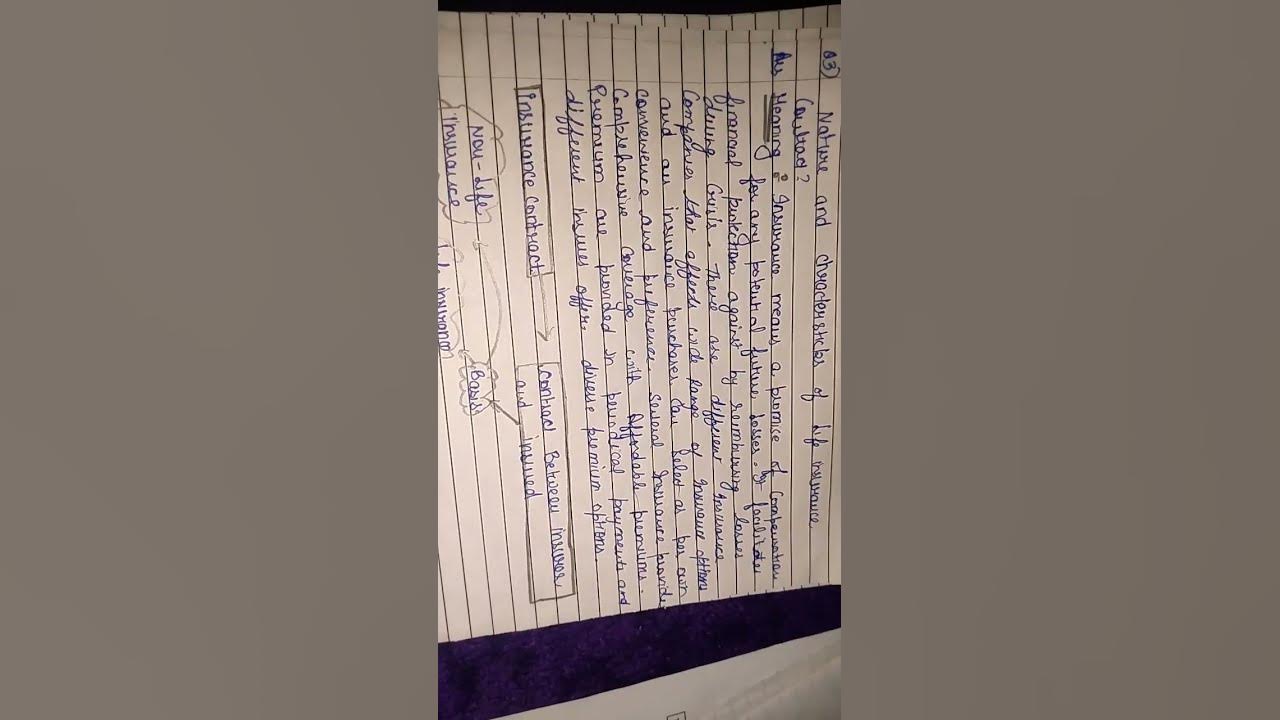 Q3) Nature and characterstics of life insurance
Contract?
Ans Meaning : Insurance means a promise of Compensation
for any potential future losses. It facilitates
financial protection against by reimbursing losses
during Crisis. There are different Insurance
Companies that affords wide range of Insurance options
and an insurance purchases Can Select as per own
convenience and preference. Several Insurance provides
Comprehensive coverage with Affordable premiums.
Premium are provided in periodical payments and
different Insures offer diverse premium options.
Insurance contract
Contract Between insurer
and insured
Non-life
Insurance
Basis
insurance